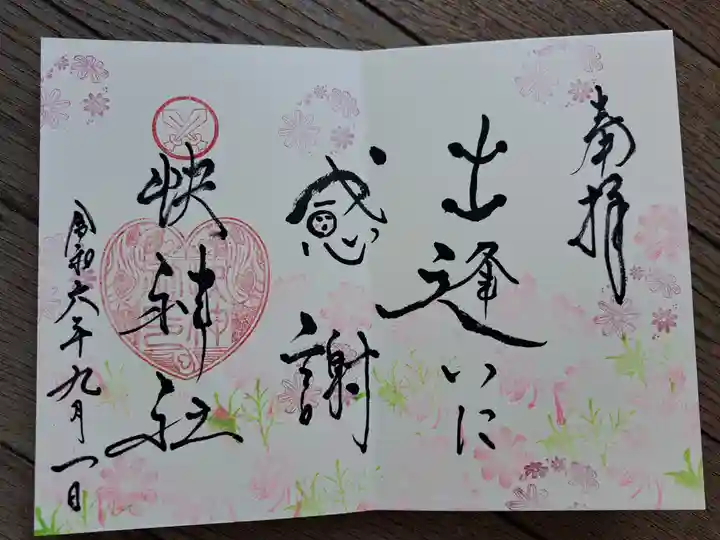 奉拝
出逢いに
感謝
快神社
令和六年九月一日